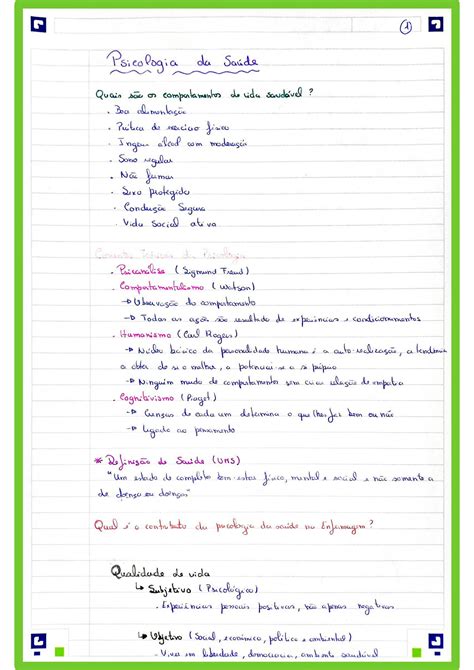 1
Psicologia da Saúde
Quais são os comportamentos de vida saudável?
. Boa alimentação
. Prática de exercício físico
. Ingerir alcool com moderação
. Sono regular
. Não fumar
. Sexo protegido
. Condução Segura
. Vida Social ativa
Correntes Teóricas da Psicologia
. Psicanálise (Sigmund Freud)
. Comportamentalismo (Watson)
→ Observação do comportamento
→ Todas as ações são resultado de experiências e condicionamentos
. Humanismo (Carl Rogers)
→ Núcleo básico da personalidade humana é a auto-realização, a tendência
a obter de si o melhor, a potenciar-se a si próprio
→ Ninguém muda de comportamentos sem criar relação de empatia
. Cognitivismo (Piaget)
→ Crenças de cada um determina o que lhes faz bem ou não
→ Ligado ao pensamento
* Definição de Saúde (OMS)
"Um estado de completo bem-estar físico, mental e social e não somente a
de doença ou doenças"
Qual é o contributo da psicologia da saúde na Enfermagem?
Qualidade de vida
↳ Subjetivo (Psicológico)
. Experiências pessoais positivas, não apenas negativas
↳ Objetivo (Social, económico, político e ambiental)
. Viver em liberdade, democracia, ambiente saudável